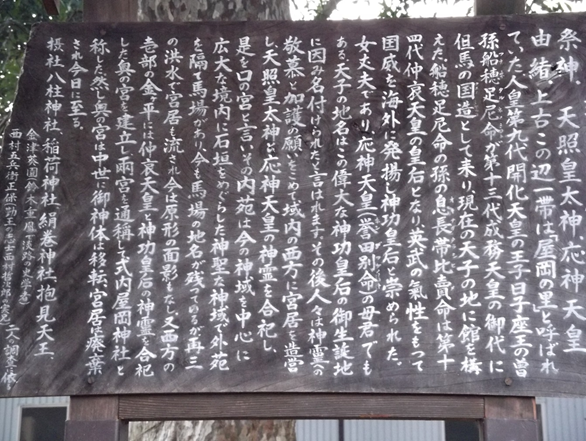 祭神 天照皇太神 応神天皇
由緒 上古この辺一帯は屋岡の里と呼ばれ
ていた人皇第九代開化天皇の王子日子座王の曽
孫船穂足尼命が第十三代成務天皇の御代に
但馬の国造として来り現在の天子の地に館を構
えた船穂足尼命の孫の息長帯比売命は第十
四代仲哀天皇の皇后となり英武の気性をもって
国威を海外に発揚し神功皇后と崇められた
女丈夫であり、応神天皇(誉田別命)の母君でも
ある、天子の地名はこの偉大な神功皇后の御生誕地
に因み名付けられたと言はれます その後人々は神霊への
敬慕と加護の願いをこめて域内の西方に宮居を造営
し天照皇太神と応神天皇の神霊を合祀し、
是を口の宮と言いその内苑は今の神域を中心に
広大な境内に石垣をめぐらした神聖な神域で外苑
を隔て馬場があり今も馬場の地名が残ているが再三
の洪水で宮居も流され今は原形の面影もなし又西方の
老部の金ノ平には仲哀天皇と神功皇后の神霊を合祀
した奥の宮を建立し両宮を通称して式内屋岡神社と
称した然るに奥の宮は中世に御神体は移転、宮居は廃棄
され今日に至る。
摂社八柱神社、稲荷神社、絹巻神社、抱見天王、
西村五兵衛正保
二人の調査に依る